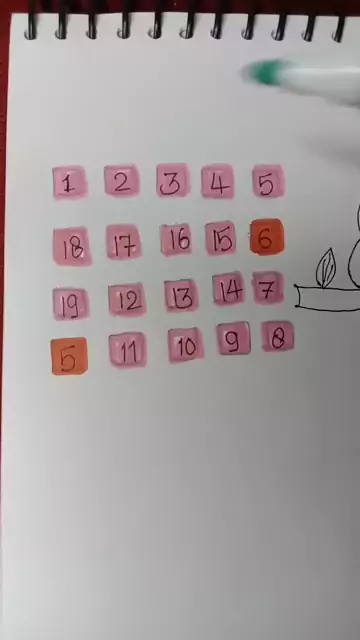 1 2 3 4 5
18 17 16 15 6
19 12 13 14 7
5 11 10 9 8